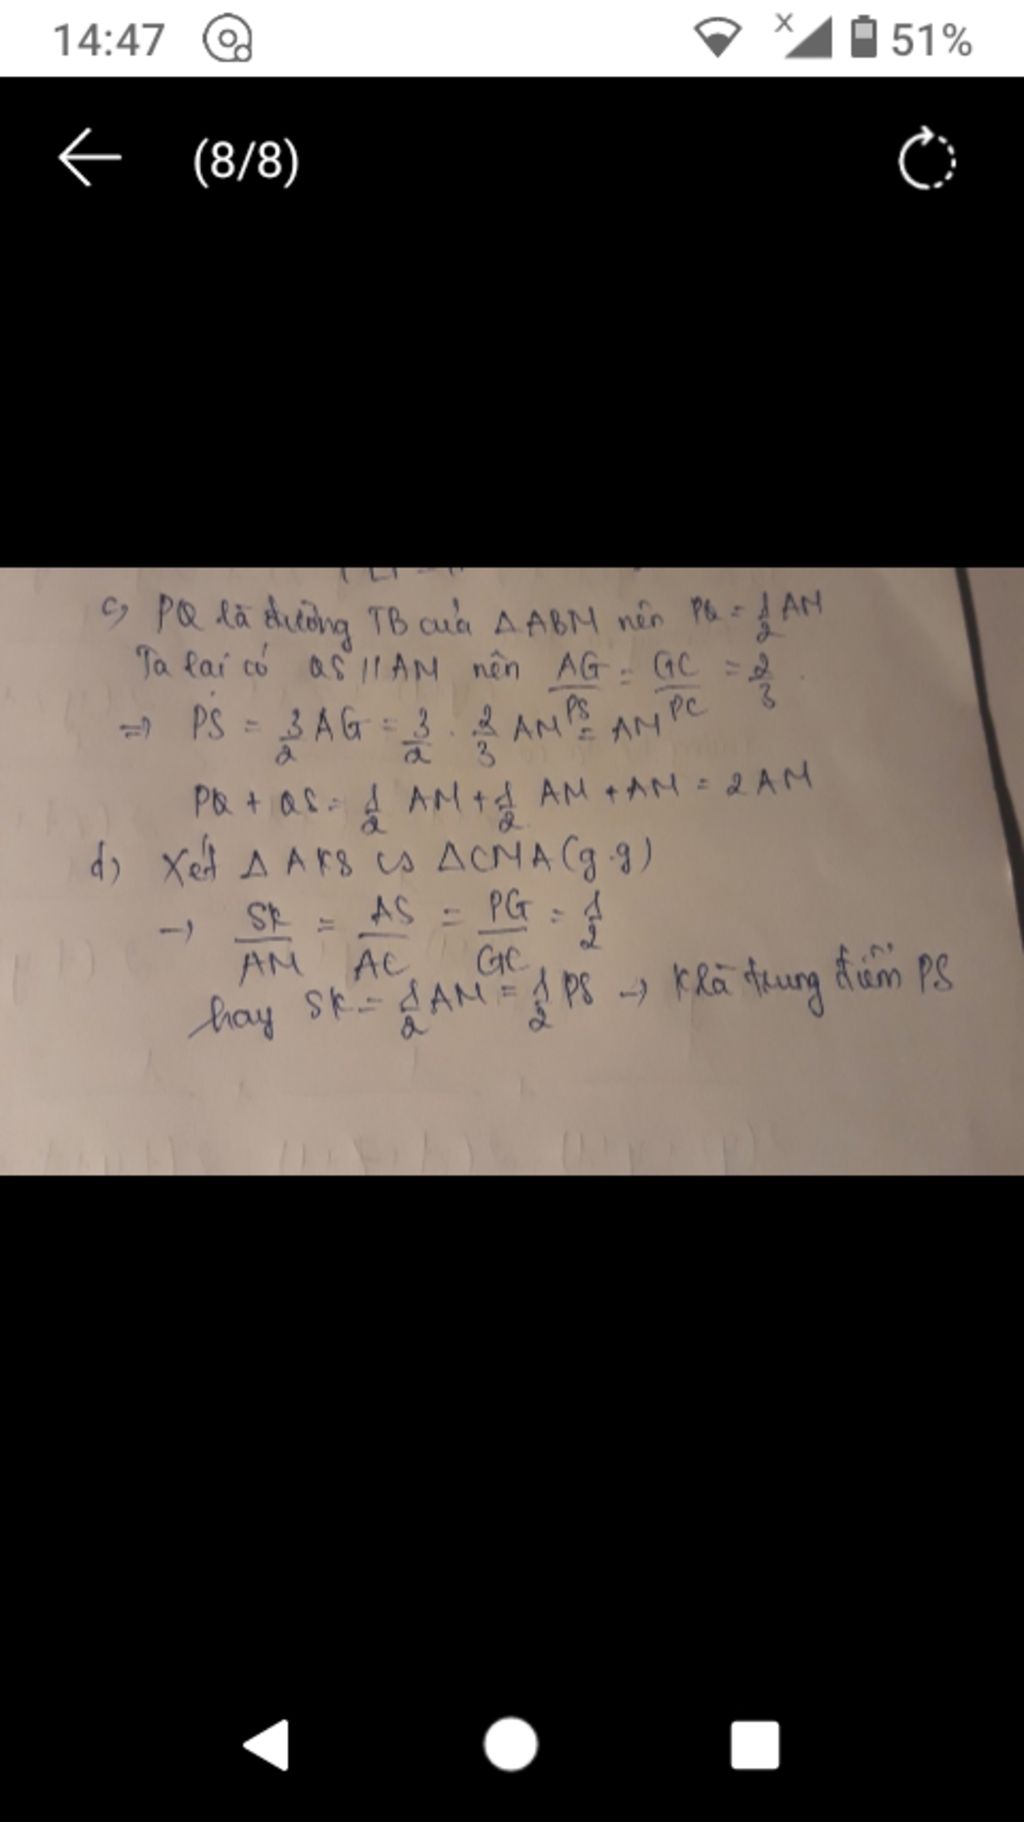 14:47 51%
(8/8)
c) PQ là đường TB của ΔABM nên PQ = 1/2 AM
Ta lại có QS // AM nên AG/PS = GC/PC = 2/3
=> PS = 3/2 AG = 3/2 . 2/3 AM = AM
PQ + QS = 1/2 AM + 1/2 AM + AM = 2AM
d) Xét ΔAKS ∽ ΔCMA (g.g)
→ SK/AM = AS/AC = PG/GC = 1/2
hay SK = 1/2 AM = 1/2 PS → K là trung điểm PS